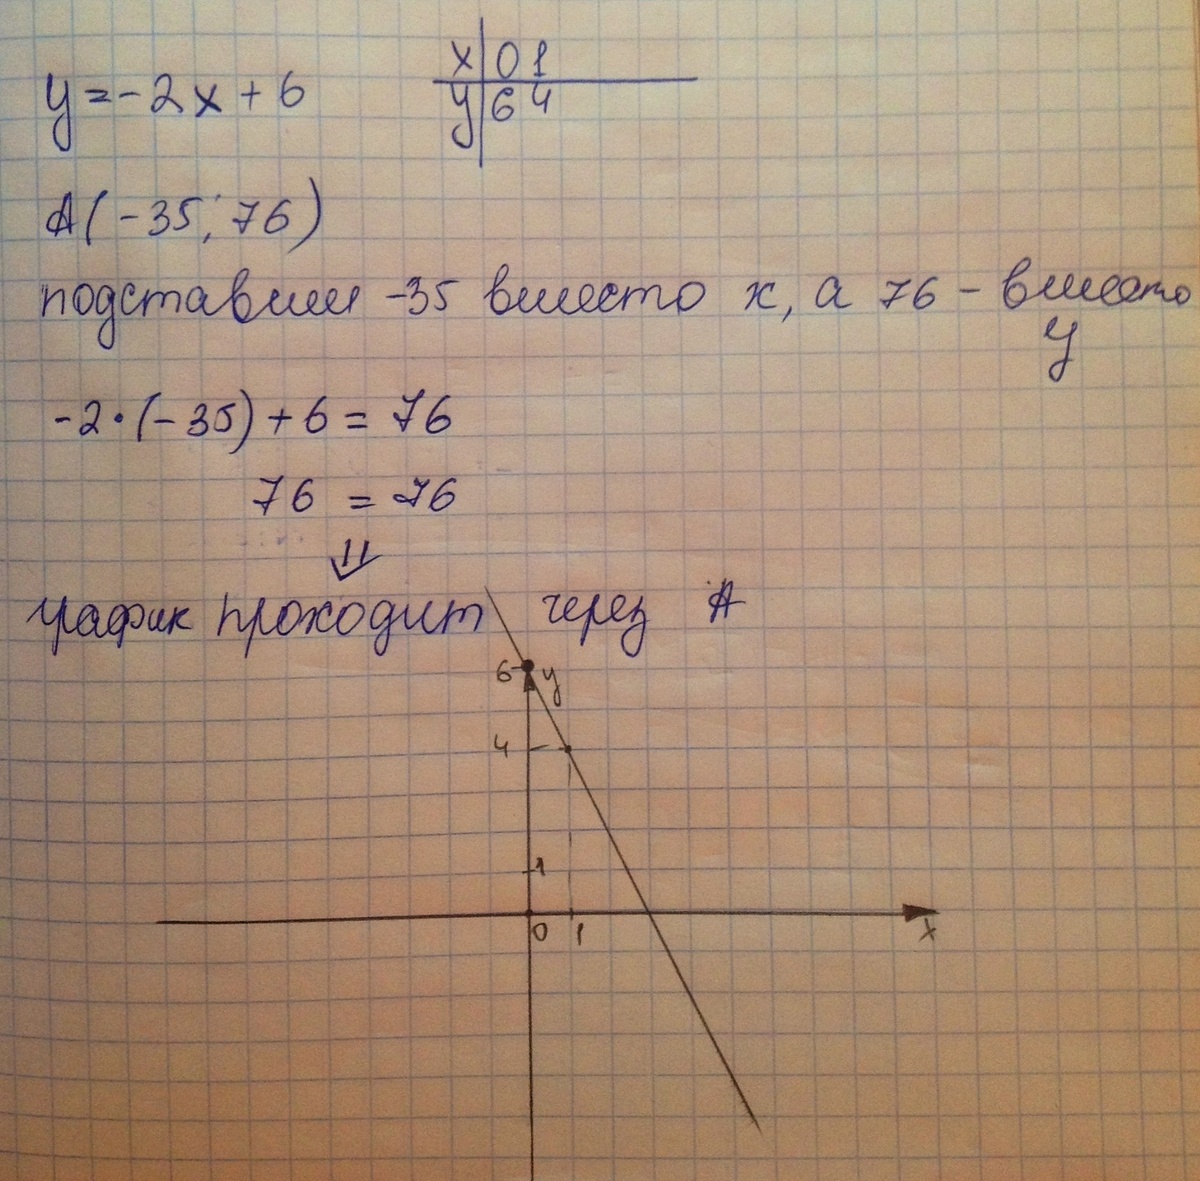 y = -2x + 6
x | 0 1
y | 6 4
A(-35; 76)
подставим -35 вместо x, а 76 - вместо
y
-2·(-35) + 6 = 76
76 = 76
⇓
график проходит через А
6 y
4
1
0 1 x